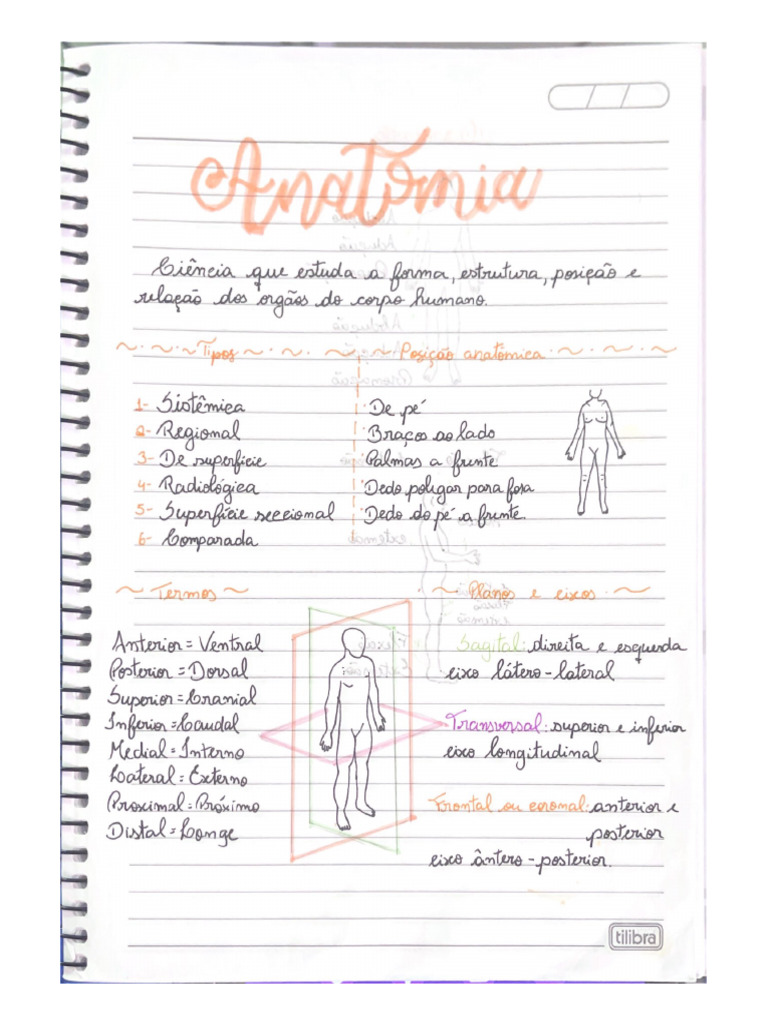 Anatomia
Ciência que estuda a forma, estrutura, posição e
relação dos orgãos do corpo humano.
Tipos
1- Sistêmica
2- Regional
3- De superfície
4- Radiológica
5- Superfície seccional
6- Comparada
Posição anatômica
De pé
Braços ao lado
Palmas a frente
Dedo poligar para fora
Dedo do pé a frente.
Termos
Anterior = Ventral
Posterior = Dorsal
Superior = Cranial
Inferior = Caudal
Medial = Interno
Lateral = Externo
Proximal = Próximo
Distal = Longe
Planos e eixos
Sagital: direita e esquerda
eixo látero-lateral
Transversal: superior e inferior
eixo longitudinal
Frontal ou coronal: anterior e
posterior
eixo ântero-posterior.
tilibra